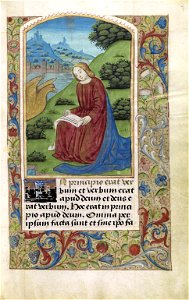 In principio erat ver
bum et verbum erat
apud deum et deus e
rat verbum. Hoc erat in princi
pio apud deum. Omnia per
ipsum facta sunt et sine ipso fa